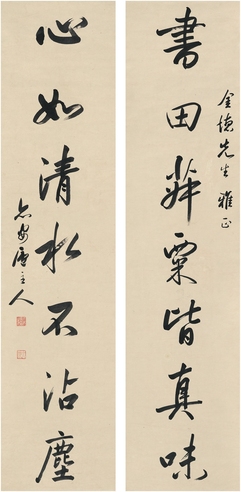 書田菽粟皆真味
金德先生雅正
心如清水不沾塵
廬主人